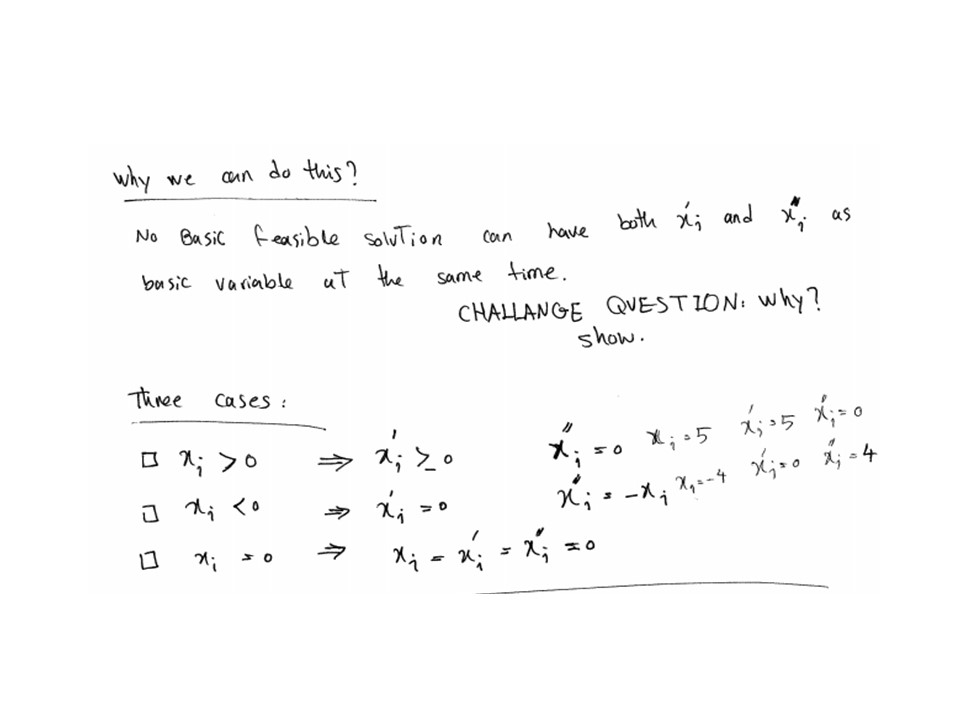 Why we can do this?
No Basic feasible soluTion can have both x'ⱼ and x''ⱼ as
basic variable aT the same time.
CHALLANGE QUESTION: Why?
show.
Three cases:
□ xⱼ > 0 ⇒ x'ⱼ ≥ 0 x''ⱼ = 0 xⱼ = 5 x'ⱼ = 5 x''ⱼ = 0
□ xⱼ < 0 ⇒ x'ⱼ = 0 x''ⱼ = -xⱼ xⱼ = -4 x'ⱼ = 0 x''ⱼ = 4
□ xⱼ = 0 ⇒ xⱼ = x'ⱼ = x''ⱼ = 0